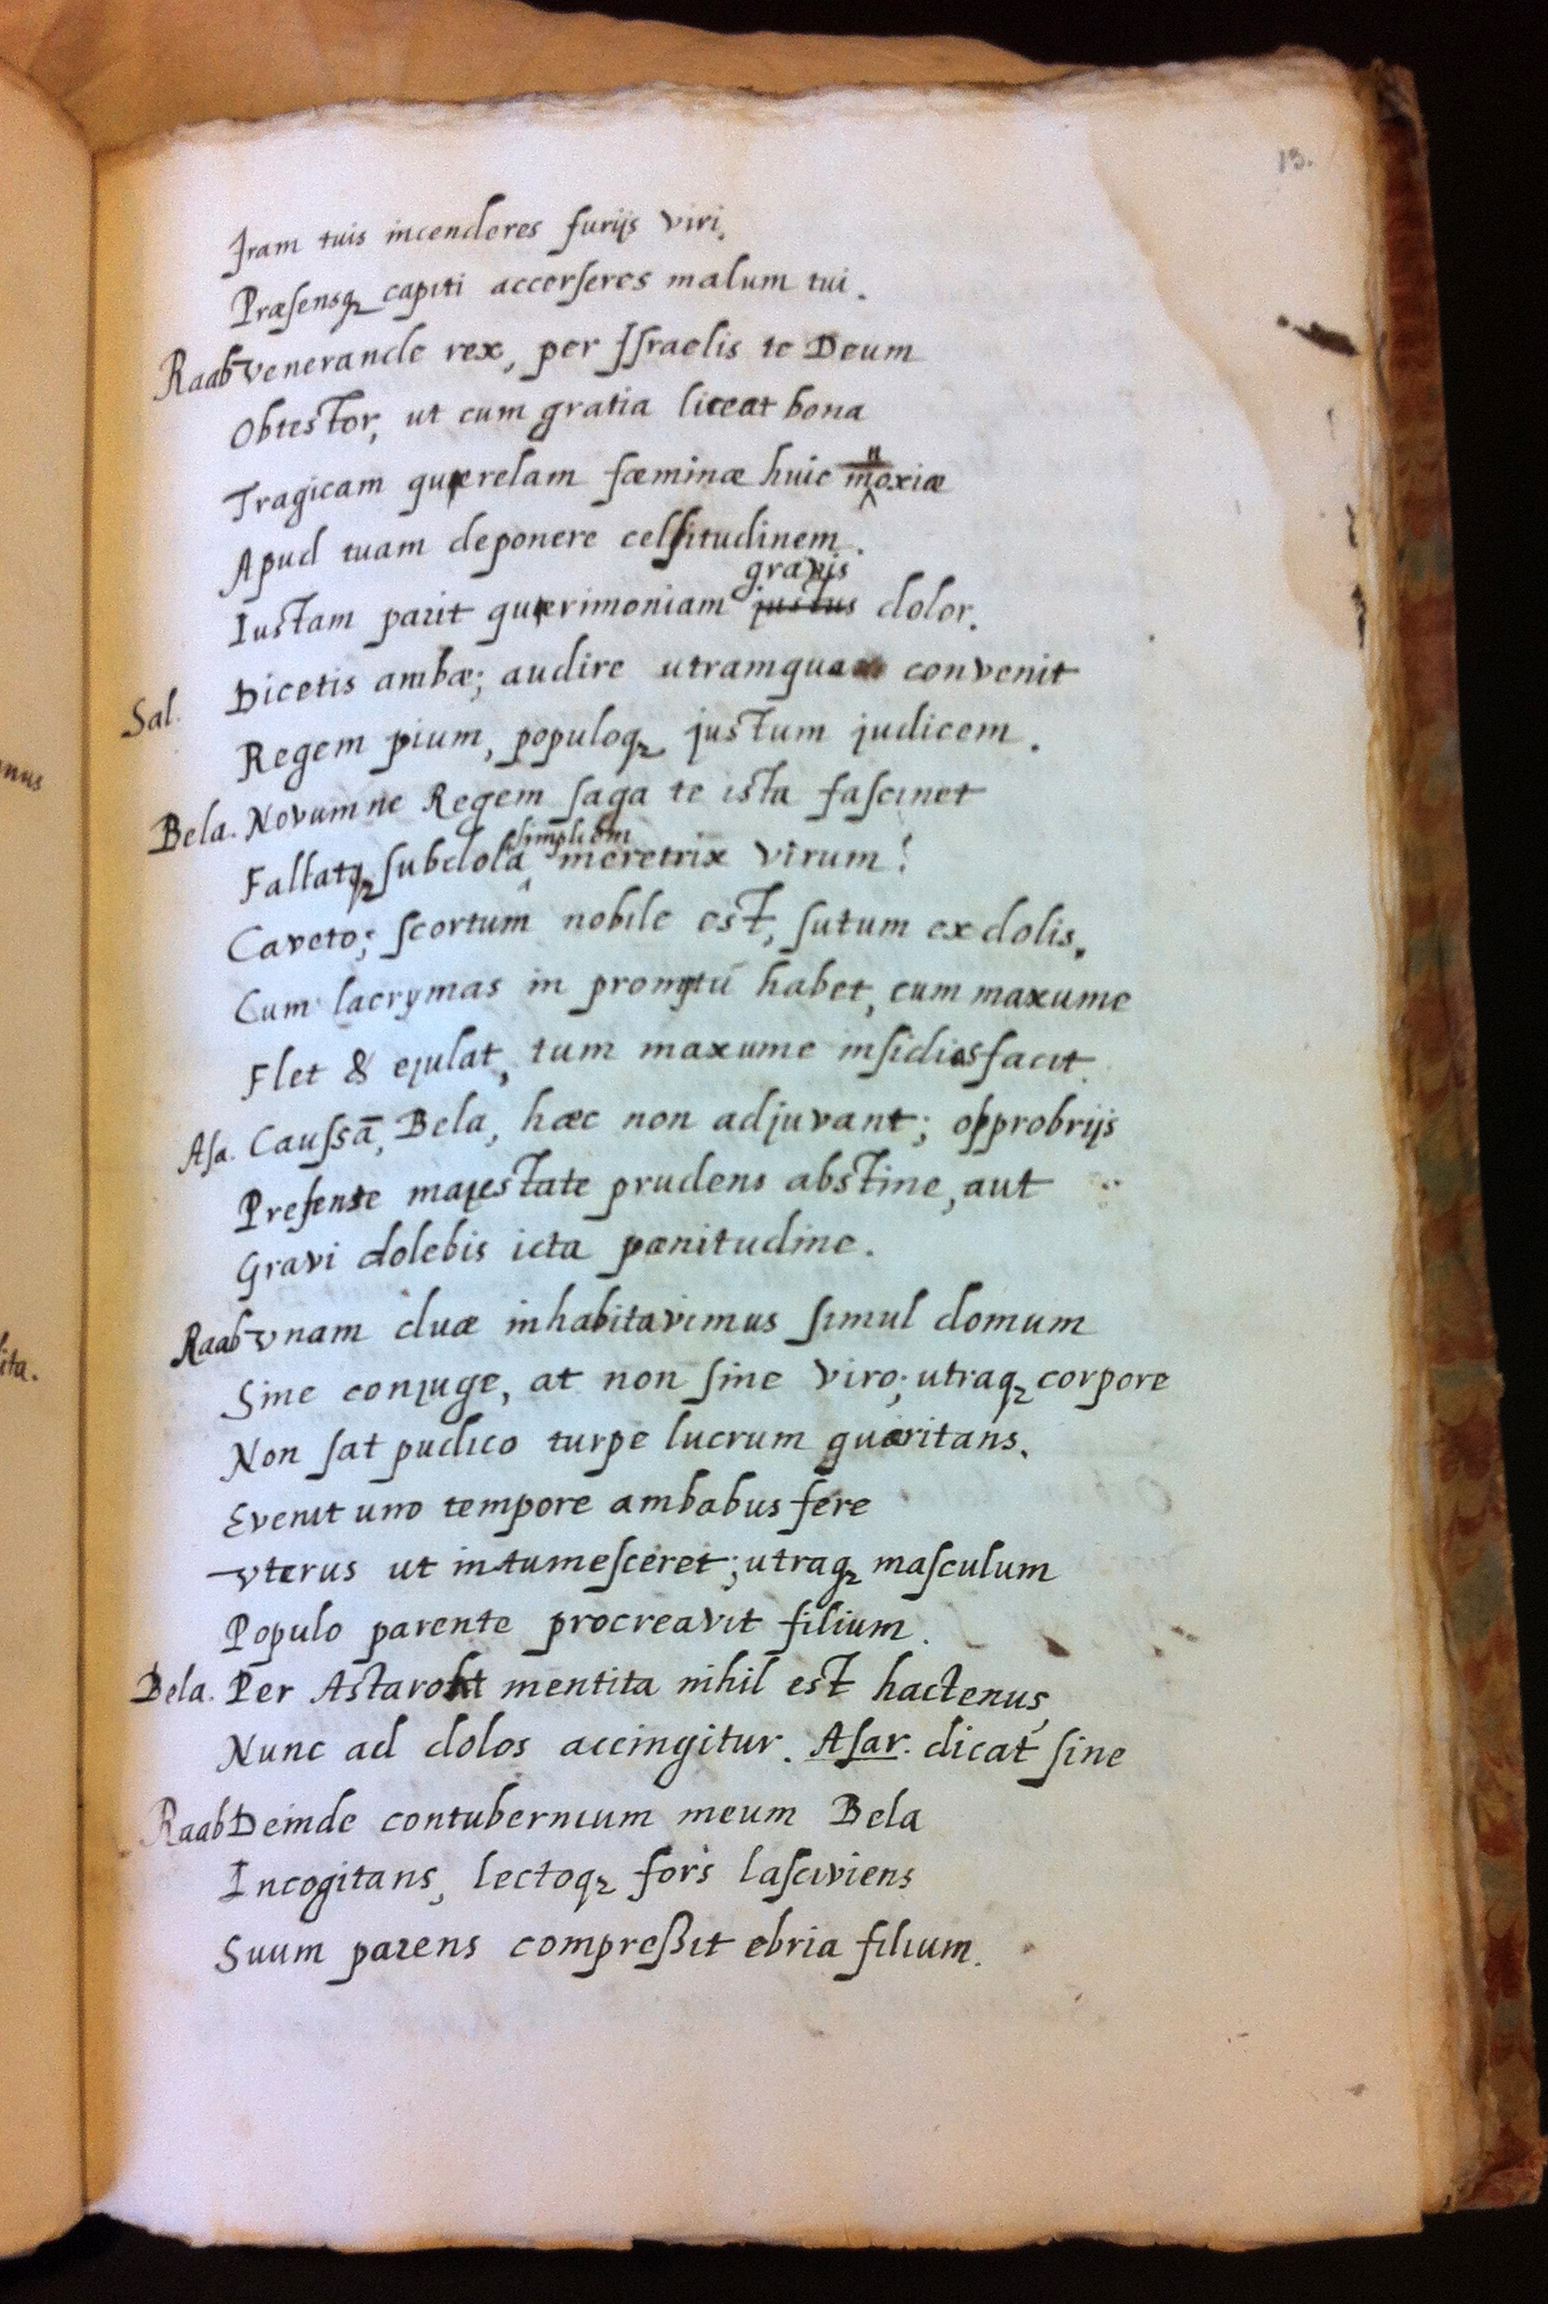 13.
Iram tuis incenderes furijs viri,
Præsensq₂ capiti accerseres malum tui.
Raab Venerande rex, per Israelis te Deum
Obtestor, ut cum gratia liceat bona
Tragicam querelam fæminæ huic noxiæ
Apud tuam deponere celsitudinem.
gravis
Iustam parit querimoniam justus dolor.
Sal. Dicetis ambæ; audire utramque convenit
Regem pium, populoq₂ justum judicem.
Bela. Novumne Regem saga te ista fascinet
simplicem
Fallatq₂ subdola meretrix virum?
Caveto; scortum nobile est, sutum ex dolis,
Cum lacrymas in promptū habet, cum maxume
Flet & ejulat, tum maxume insidias facit.
Asa. Caussā, Bela, hæc non adjuvant; opprobrijs
Presente majestate prudens abstine, aut
Gravi dolebis icta pænitudine.
Raab Vnam duæ inhabitavimus simul domum
Sine conjuge, at non sine viro; utraq₂ corpore
Non sat pudico turpe lucrum quæritans.
Evenit uno tempore ambabus fere
Vterus ut intumesceret; utraq₂ masculum
Populo parente procreavit filium.
Bela. Per Astaroht mentita nihil est hactenus,
Nunc ad dolos accingitur. Asar. dicat sine
Raab Deinde contubernium meum Bela
Incogitans, lectoq₂ fors lasciviens
Suum parens compreßit ebria filium.
nus
ita.